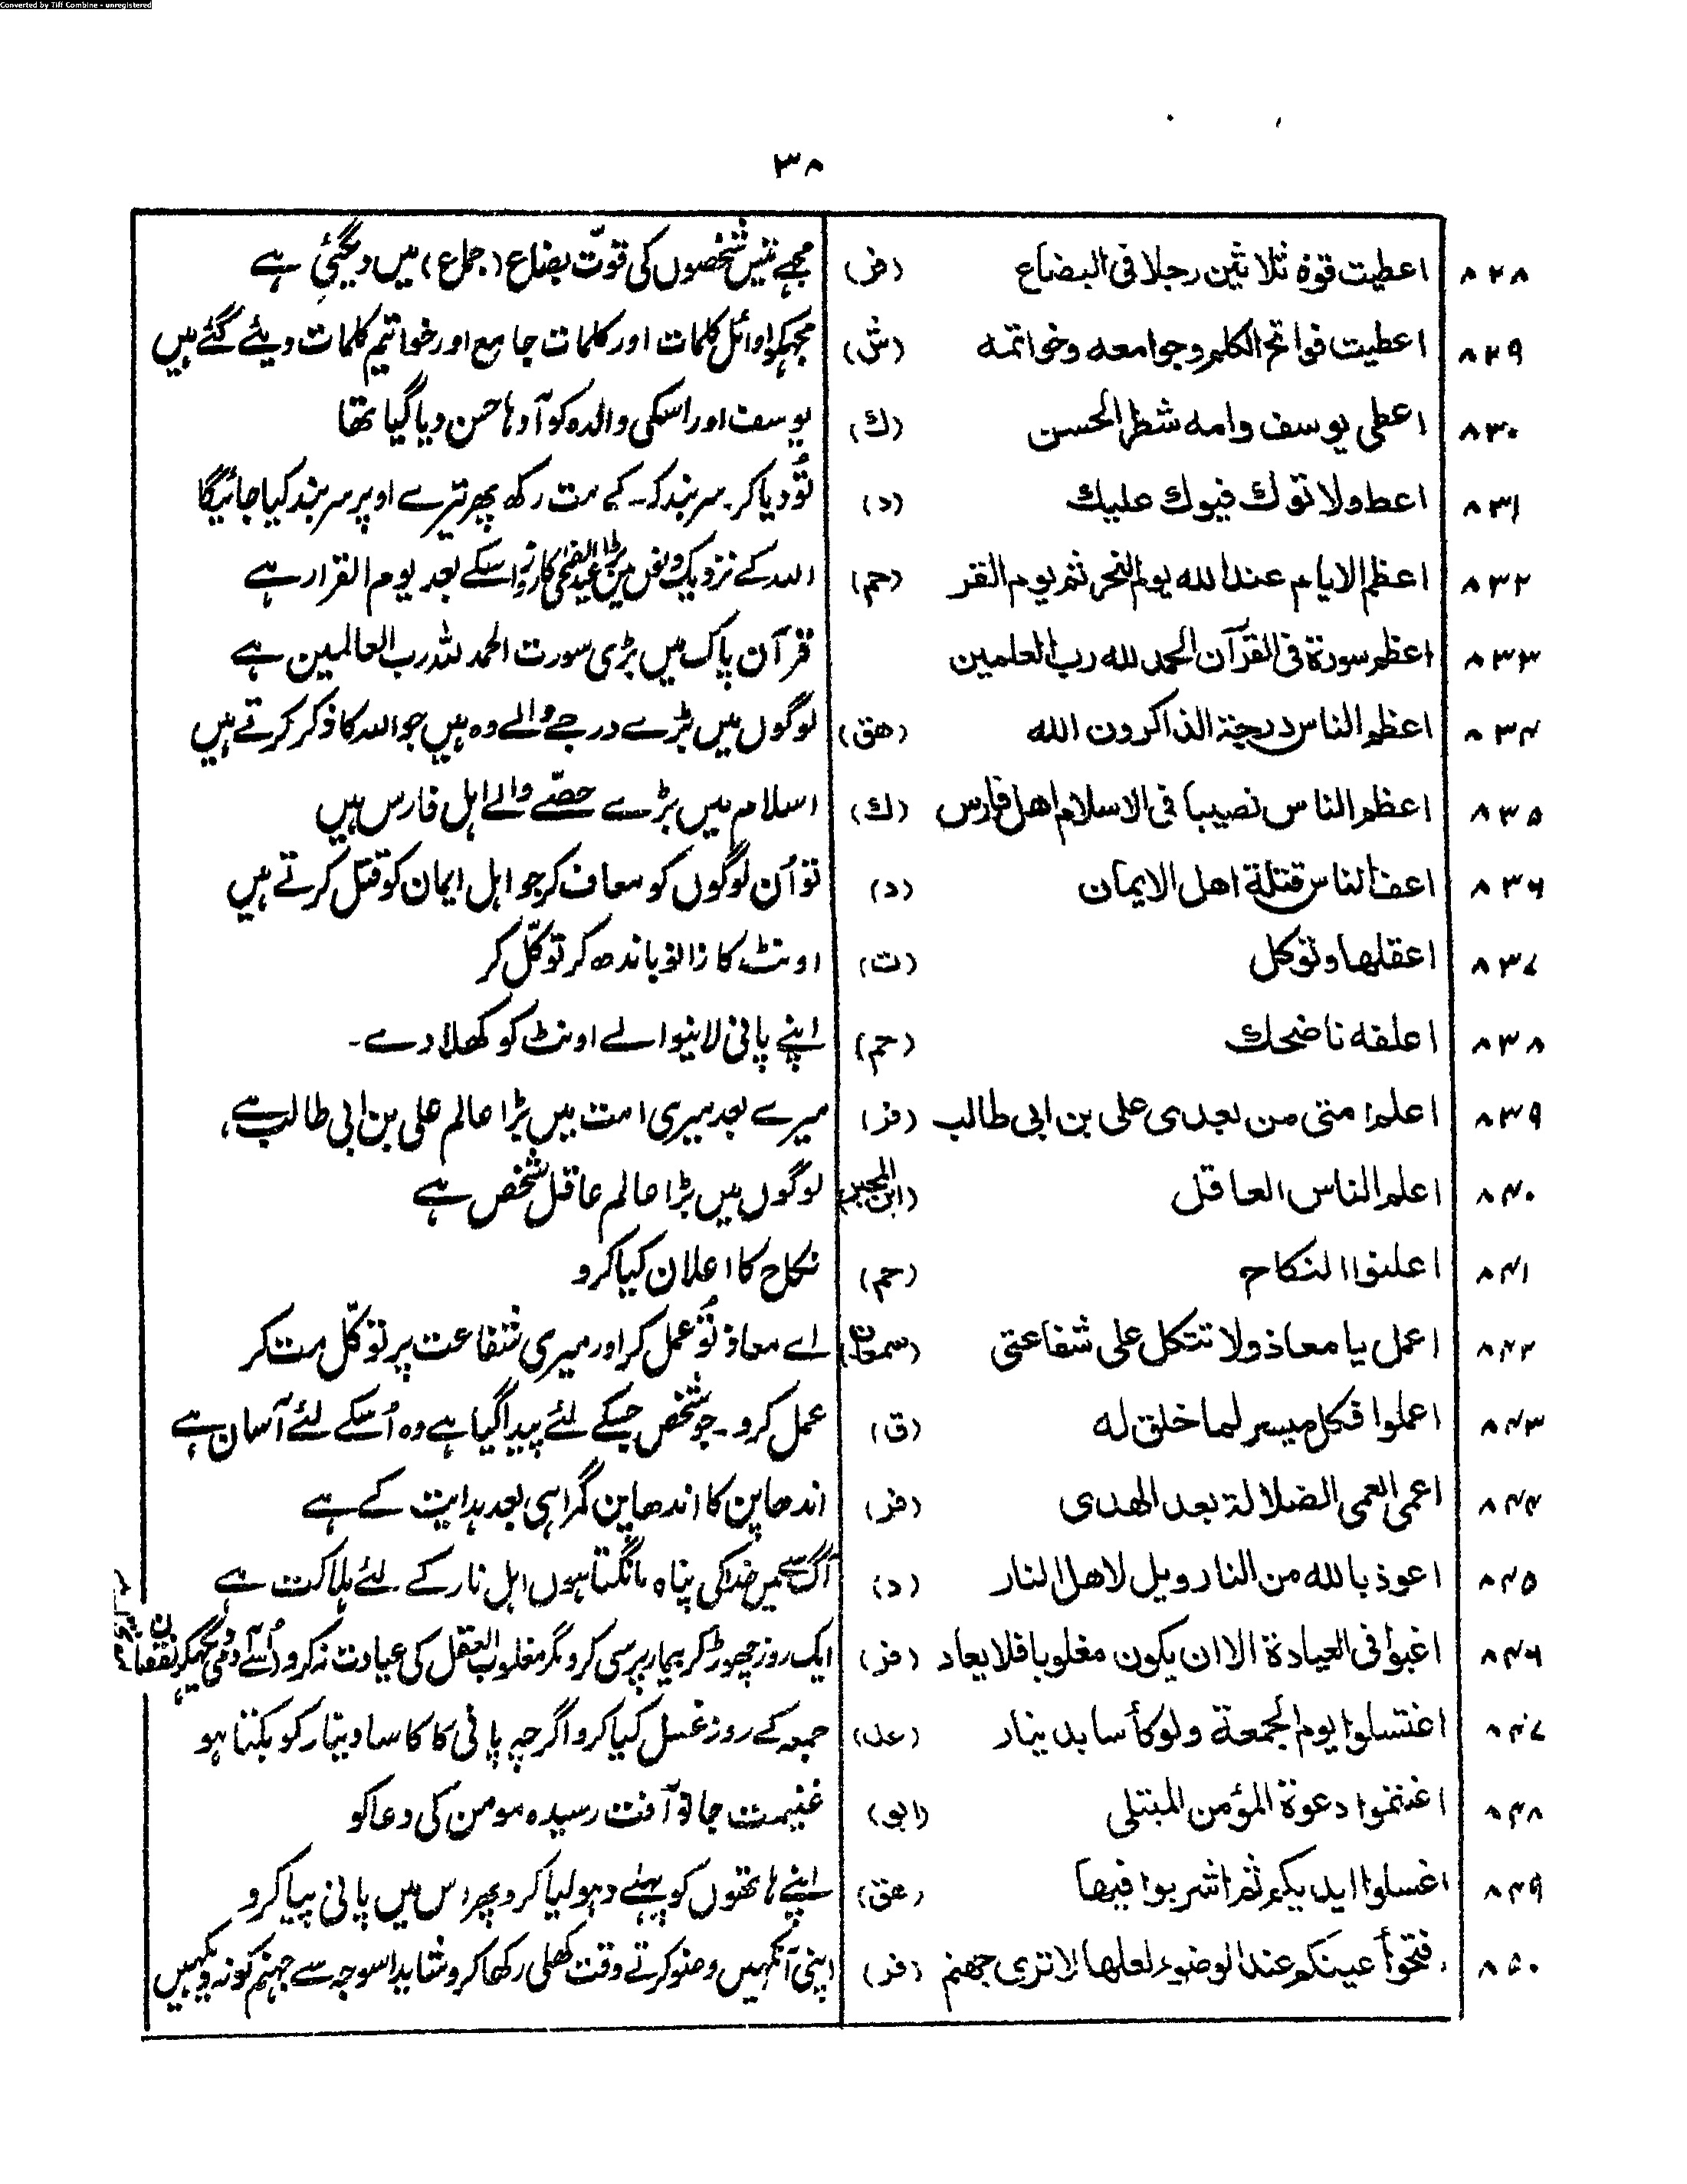 Converted by Tiff Combine - unregistered
۳۸
۸۲۸ اعطیت قوة ثلاثین رجلا فی البضاع (فر) مجھے تیس شخصوں کی قوّت بضاع (جماع) میں دیگئی ہے
۸۲۹ اعطیت فواتح الکلم وجوامعه وخواتمه (ش) مجھکو اوائل کلمات اور کلمات جامع اور خواتیم کلمات دیئے گئے ہیں
۸۳۰ اعطی یوسف وامه شطر الحسن (ك) یوسف اور اسکی والدہ کو آدہا حسن دیا گیا تھا
۸۳۱ اعط ولا توك فیوك علیك (د) تُو دیا کر۔ سر بند کرکے مت رکھ پھر تیرے اوپر سر بند کیا جائیگا
۸۳۲ اعظم الایام عند الله یوم النحر ثم یوم القر (حم) اللہ کے نزدیک دنوں میں بڑا عید الضحٰی کا روز اسکے بعد یوم القرار ہے
۸۳۳ اعظم سورة فی القرآن الحمد لله رب العلمین قرآن پاک میں بڑی سورت الحمد للہ رب العالمین ہے
۸۳۴ اعظم الناس درجة الذاکرون الله (هق) لوگوں میں بڑے درجے والے وہ ہیں جو اللہ کا ذکر کرتے ہیں
۸۳۵ اعظم الناس نصیبا فی الاسلام اهل فارس (ك) اسلام میں بڑے حصّے والے اہل فارس ہیں
۸۳۶ اعف الناس قتلة اهل الایمان (د) تو اُن لوگوں کو معاف کر جو اہل ایمان کو قتل کرتے ہیں
۸۳۷ اعقلها وتوکل (ت) اونٹ کا زانو باندھ کر توکّل کر
۸۳۸ اعلفه ناضحك (حم) اپنے پانی لانیوالے اونٹ کو کھلا دے۔
۸۳۹ اعلم امتی من بعدی علی بن ابی طالب (فر) میرے بعد میری امت میں بڑا عالم علی بن ابی طالب ہے،
۸۴۰ اعلم الناس العاقل (ابن المجبر) لوگوں میں بڑا عالم عاقل شخص ہے
۸۴۱ اعلنوا النکاح (حم) نکاح کا اعلان کیا کرو
۸۴۲ اعمل یا معاذ ولا تتکل علی شفاعتی (سمعان) اے معاذ تُو عمل کر اور میری شفاعت پر توکّل مت کر
۸۴۳ اعملوا فکل میسر لما خلق له (ق) عمل کرو۔ جو شخص جسکے لئے پیدا گیا ہے وہ اُسکے لئے آسان ہے
۸۴۴ اعمی العمی الضلالة بعد الهدی (فر) اندھاپن کا اندھاپن گمراہی بعد ہدایت کے ہے
۸۴۵ اعوذ بالله من النار ویل لاهل النار (د) آگ سے میں خدا کی پناہ مانگتا ہوں اہل نار کے لئے ہلاکت ہے
۸۴۶ اغبوا فی العیادة الا ان یکون مغلوبا فلا یعاد (فر) ایک روز چھوڑ کر بیمار پرسی کرو مگر مغلوب العقل کی عیادت نہ کرو
۸۴۷ اغتسلوا یوم الجمعة ولو کأسا بدینار (عد) جمعہ کے روز غسل کیا کرو اگرچہ پانی کا کاسا دینار کو بکتا ہو
۸۴۸ اغتنموا دعوة المؤمن المبتلی (ابو) غنیمت جانو آفت رسیدہ مومن کی دعا کو
۸۴۹ اغسلوا ایدیکم ثم اشربوا فیها (هق) اپنے ہاتھوں کو پہلے دہو لیا کرو پھر اس میں پانی پیا کرو
۸۵۰ فتحوا أعینکم عند الوضوء لعلها لا تری جهنم (فر) اپنی آنکہیں وضو کرتے وقت کھلی رکھا کرو شاید اسوجہ سے جہنم کو نہ دیکہیں